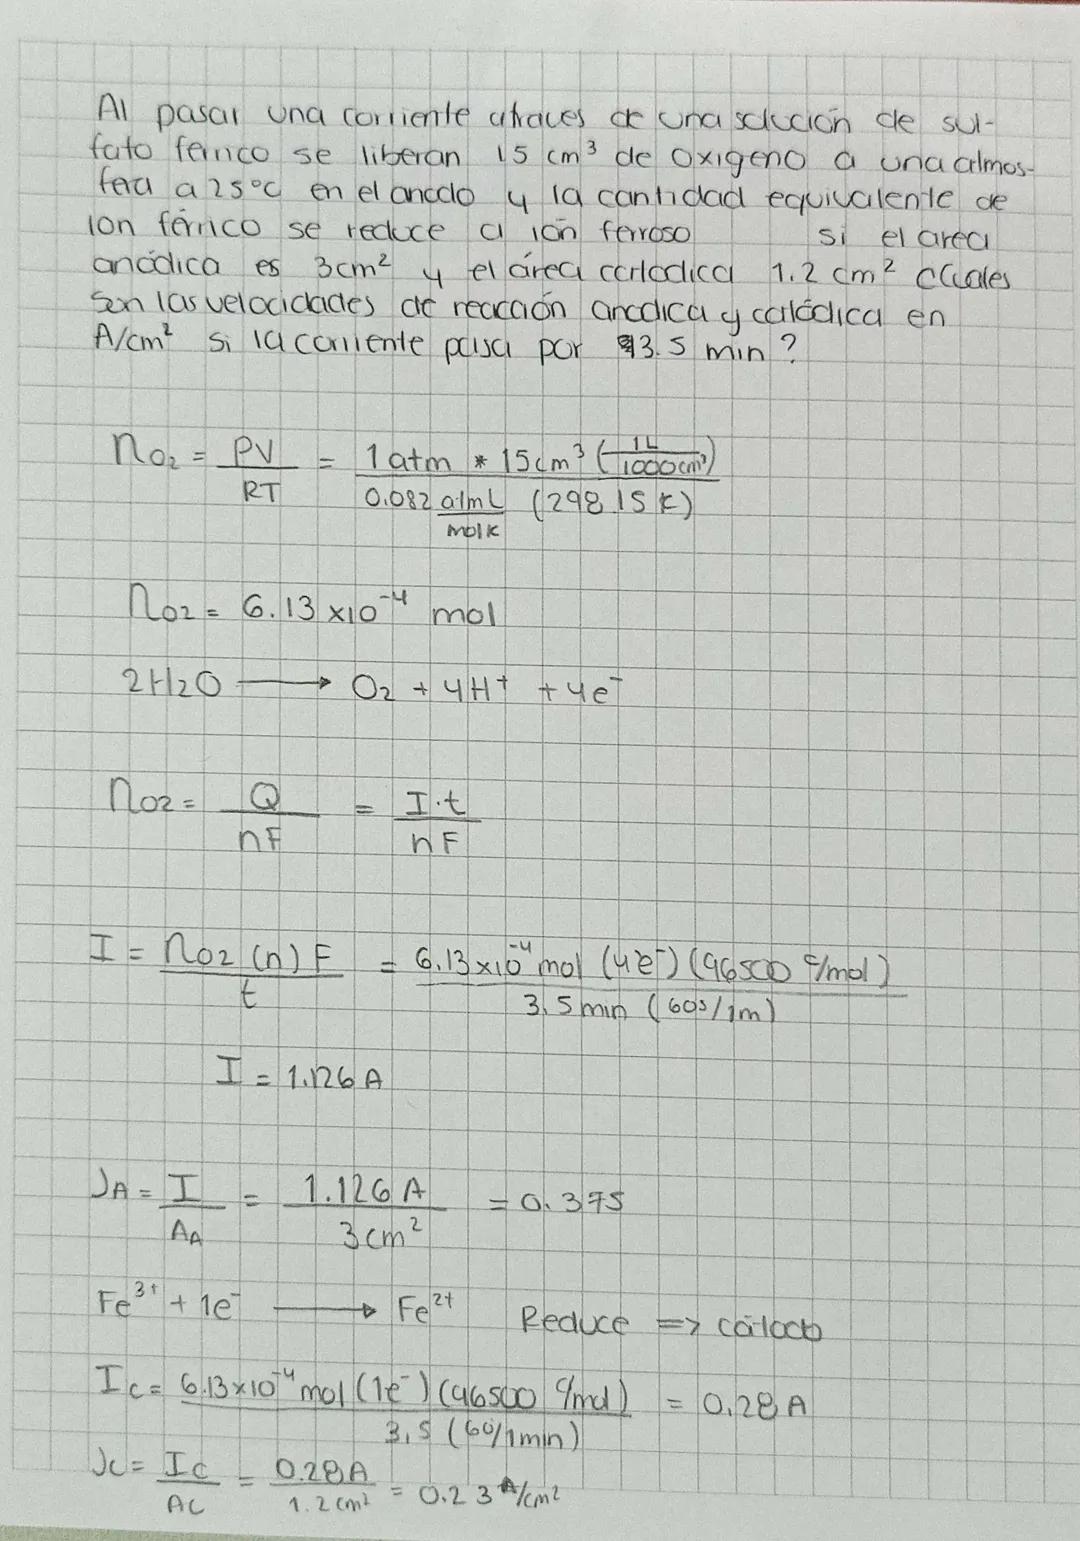 Al pasar una corriente atraves de una solución de sul-
fato ferrico se liberan 15 cm³ de oxigeno a una atmos-
fera a 25°C en el anodo y la cantidad equivalente de
ion férrico se reduce a ión ferroso si el area
anódica es 3cm² y el área catodica 1.2 cm² cuales
son las velocidades de reacción anodica y catódica en
A/cm² si la corriente pasa por 3.5 min?
nO₂ = PV/RT = 1atm * 15cm³ (1L/1000cm³) / 0.082 atmL/molK (298.15 K)
nO2 = 6.13 x10⁻⁴ mol
2H2O ⟶ O2 + 4H⁺ + 4e⁻
nO2 = Q/nF = I·t/nF
I = nO2 (n) F / t = 6.13x10⁻⁴ mol (4e⁻) (96500 C/mol) / 3.5 min (60s/1m)
I = 1.126 A
JA = I/AA = 1.126 A / 3cm² = 0.375
Fe³⁺ + 1e⁻ ⟶ Fe²⁺ Reduce => cátodo
Ic = 6.13x10⁻⁴ mol (1e⁻) (96500 C/mol) / 3,5 (60/1min) = 0.28 A
Jc = Ic/AC = 0.28A / 1.2cm² = 0.23 A/cm²